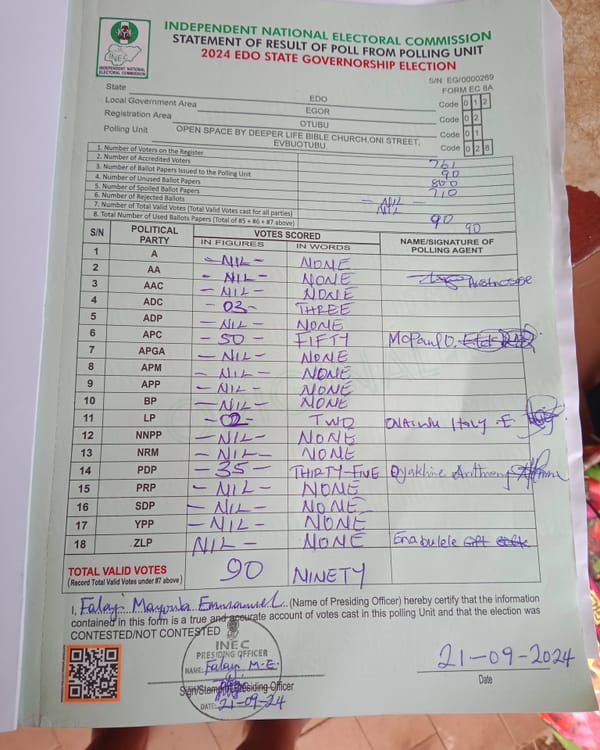 INEC
INDEPENDENT NATIONAL ELECTORAL COMMISSION
INDEPENDENT NATIONAL ELECTORAL COMMISSION
STATEMENT OF RESULT OF POLL FROM POLLING UNIT
2024 EDO STATE GOVERNORSHIP ELECTION
S/N EG/0000269
FORM EC 8A
State EDO Code 0 1 2
Local Government Area EGOR Code 0 2
Registration Area OTUBU Code 0 1
Polling Unit OPEN SPACE BY DEEPER LIFE BIBLE CHURCH,ONI STREET, EVBUOTUBU. Code 0 2 8
1. Number of Voters on the Register 761
2. Number of Accredited Voters 90
3. Number of Ballot Papers Issued to the Polling Unit 800
4. Number of Unused Ballot Papers 710
5. Number of Spoiled Ballot Papers - NIL -
6. Number of Rejected Ballots NIL
7. Number of Total Valid Votes (Total Valid Votes cast for all parties) 90
8. Total Number of Used Ballots Papers (Total of #5 + #6 + #7 above) 90
S/N POLITICAL PARTY VOTES SCORED NAME/SIGNATURE OF POLLING AGENT
IN FIGURES IN WORDS
1 A - NIL - NONE
2 AA - NIL - NONE
3 AAC - NIL - NONE
4 ADC - 03 - THREE
5 ADP - NIL - NONE
6 APC - 50 - FIFTY McPaul O.
7 APGA - NIL - NONE
8 APM - NIL - NONE
9 APP - NIL - NONE
10 BP - NIL - NONE
11 LP - 02 - TWO Italy E.
12 NNPP - NIL - NONE
13 NRM - NIL - NONE
14 PDP - 35 - THIRTY-FIVE Oyakhire
15 PRP - NIL - NONE
16 SDP - NIL - NONE
17 YPP - NIL - NONE
18 ZLP NIL - NONE Enabulele
TOTAL VALID VOTES 90 NINETY
(Record Total Valid Votes under #7 above)
I, Falayi Emmanuel (Name of Presiding Officer) hereby certify that the information
contained in this form is a true and accurate account of votes cast in this polling Unit and that the election was
CONTESTED/NOT CONTESTED
INEC
PRESIDING OFFICER
NAME: Falayi M.E.
Sign/Stamp of Presiding Officer
DATE: 21-09-24
21-09-2024
Date